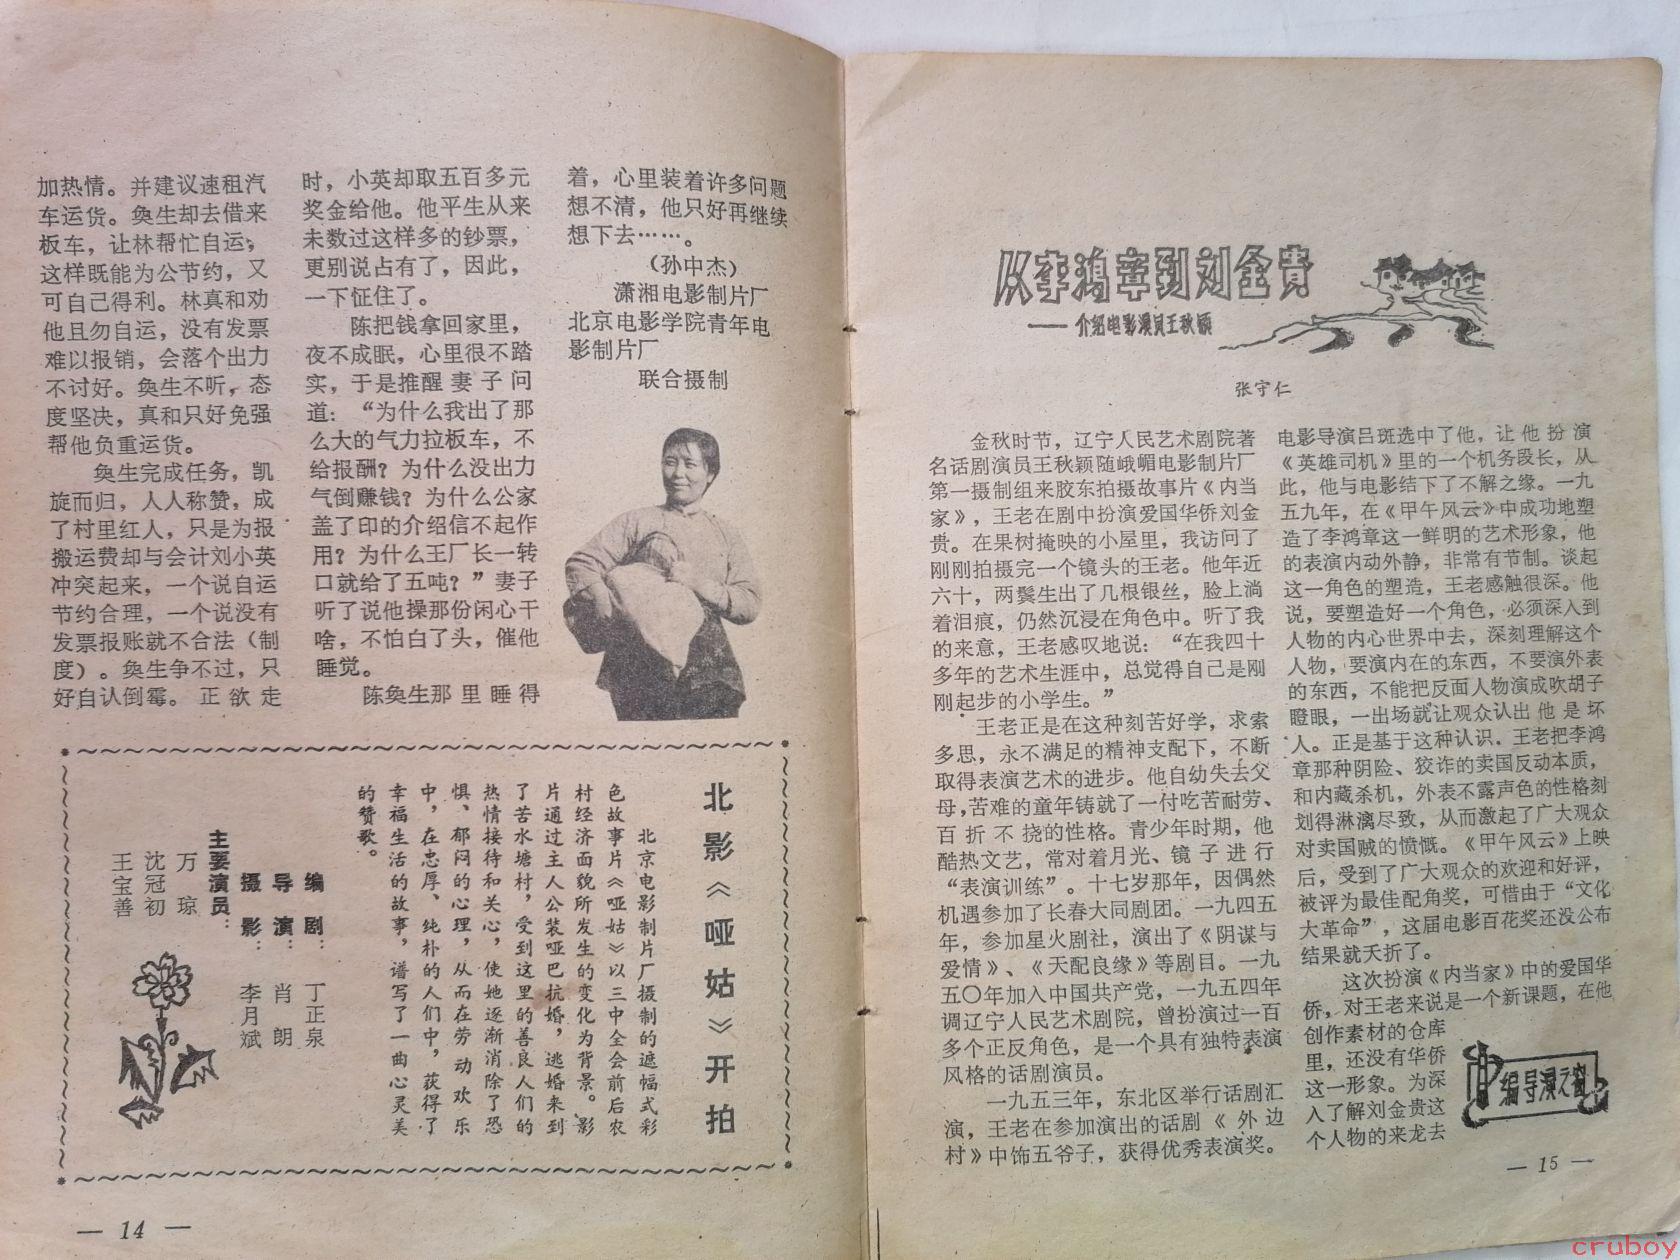 加热情。并建议速租汽
车运货。奂生却去借来
板车，让林帮忙自运，
这样既能为公节约，又
可自己得利。林真和劝
他且勿自运，没有发票
难以报销，会落个出力
不讨好。奂生不听，态
度坚决，真和只好免强
帮他负重运货。
奂生完成任务，凯
旋而归，人人称赞，成
了村里红人，只是为报
搬运费却与会计刘小英
冲突起来，一个说自运
节约合理，一个说没有
发票报账就不合法（制
度）。奂生争不过，只
好自认倒霉。正欲走
时，小英却取五百多元
奖金给他。他平生从来
未数过这样多的钞票，
更别说占有了，因此，
一下怔住了。
陈把钱拿回家里，
夜不成眠，心里很不踏
实，于是推醒妻子问
道：“为什么我出了那
么大的气力拉板车，不
给报酬？为什么没出力
气倒赚钱？为什么公家
盖了印的介绍信不起作
用？为什么王厂长一转
口就给了五吨？”妻子
听了说他操那份闲心干
啥，不怕白了头，催他
睡觉。
陈奂生那里睡得
着，心里装着许多问题
想不清，他只好再继续
想下去……。
（孙中杰）
潇湘电影制片厂
北京电影学院青年电
影制片厂
联合摄制
北影《哑姑》开拍
北京电影制片厂摄制的遮幅式彩
色故事片《哑姑》以三中全会前后农
村经济面貌所发生的变化为背景。影
片通过主人公装哑巴抗婚，逃婚来到
了苦水塘村，受到这里的善良人们的
热情接待和关心，使她逐渐消除了恐
惧、郁闷的心理，从而在劳动欢乐
中，在忠厚、纯朴的人们中，获得了
幸福生活的故事，谱写了一曲心灵美
的赞歌。
编剧：丁正泉
导演：肖朗
摄影：李月斌
主要演员：
万琼
沈冠初
王宝善
— 14 —
从李鸿章到刘金贵
——介绍电影演员王秋颖
张守仁
金秋时节，辽宁人民艺术剧院著
名话剧演员王秋颖随峨嵋电影制片厂
第一摄制组来胶东拍摄故事片《内当
家》，王老在剧中扮演爱国华侨刘金
贵。在果树掩映的小屋里，我访问了
刚刚拍摄完一个镜头的王老。他年近
六十，两鬓生出了几根银丝，脸上淌
着泪痕，仍然沉浸在角色中。听了我
的来意，王老感叹地说：“在我四十
多年的艺术生涯中，总觉得自己是刚
刚起步的小学生。”
王老正是在这种刻苦好学，求索
多思，永不满足的精神支配下，不断
取得表演艺术的进步。他自幼失去父
母，苦难的童年铸就了一付吃苦耐劳、
百折不挠的性格。青少年时期，他
酷热文艺，常对着月光、镜子进行
“表演训练”。十七岁那年，因偶然
机遇参加了长春大同剧团。一九四五
年，参加星火剧社，演出了《阴谋与
爱情》、《天配良缘》等剧目。一九
五〇年加入中国共产党，一九五四年
调辽宁人民艺术剧院，曾扮演过一百
多个正反角色，是一个具有独特表演
风格的话剧演员。
一九五三年，东北区举行话剧汇
演，王老在参加演出的话剧《外边
村》中饰五爷子，获得优秀表演奖。
电影导演吕班选中了他，让他扮演
《英雄司机》里的一个机务段长，从
此，他与电影结下了不解之缘。一九
五九年，在《甲午风云》中成功地塑
造了李鸿章这一鲜明的艺术形象，他
的表演内动外静，非常有节制。谈起
这一角色的塑造，王老感触很深。他
说，要塑造好一个角色，必须深入到
人物的内心世界中去，深刻理解这个
人物，要演内在的东西，不要演外表
的东西，不能把反面人物演成吹胡子
瞪眼，一出场就让观众认出他是坏
人。正是基于这种认识，王老把李鸿
章那种阴险、狡诈的卖国反动本质，
和内藏杀机，外表不露声色的性格刻
划得淋漓尽致，从而激起了广大观众
对卖国贼的愤慨。《甲午风云》上映
后，受到了广大观众的欢迎和好评，
被评为最佳配角奖，可惜由于“文化
大革命”，这届电影百花奖还没公布
结果就夭折了。
这次扮演《内当家》中的爱国华
侨，对王老来说是一个新课题，在他
创作素材的仓库
里，还没有华侨
这一形象。为深
入了解刘金贵这
个人物的来龙去
编导演之窗
— 15 —
cruboy